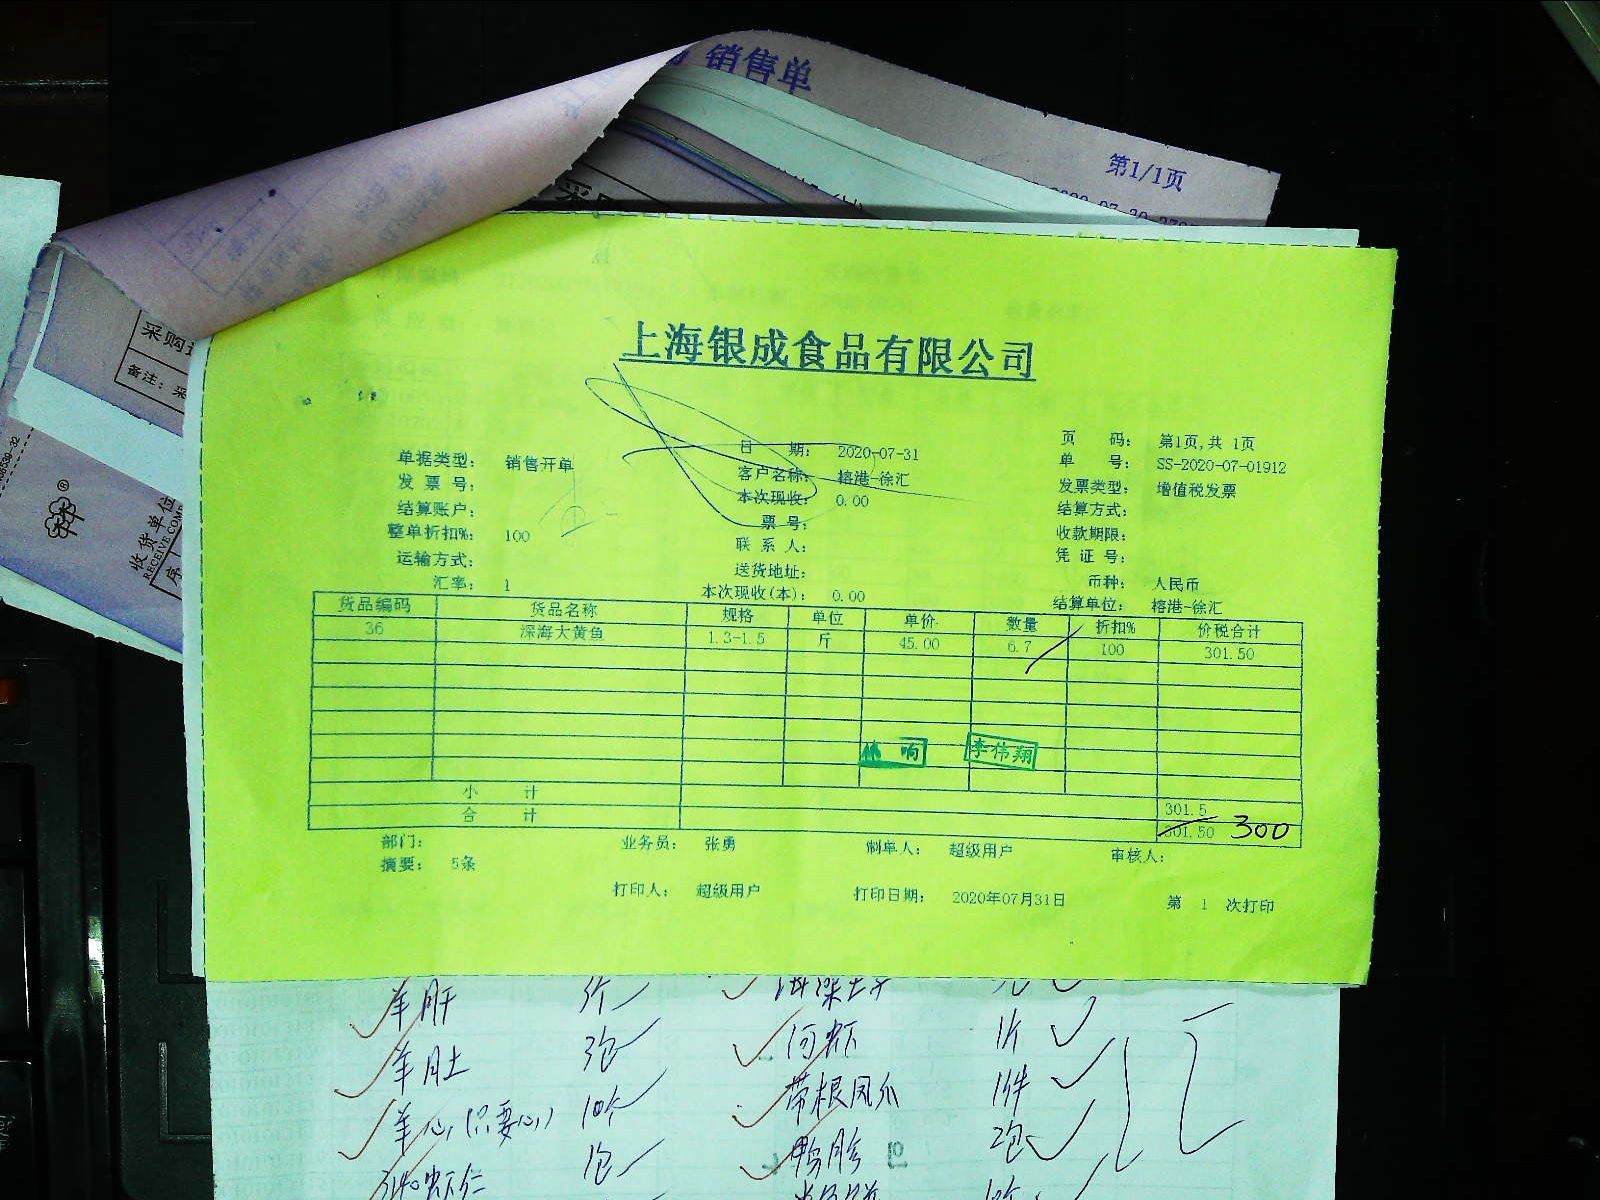 销售单
第1/1页
采购
备注：采
收货单位
RECEIVE COMP
序
上海银成食品有限公司
页 码： 第1页,共 1页
日 期： 2020-07-31
单据类型： 销售开单
单 号： SS-2020-07-01912
客户名称： 榕港-徐汇
发票号：
发票类型： 增值税发票
本次现收： 0.00
结算账户：
结算方式：
票号：
整单折扣%： 100
收款期限：
联系人：
凭证号：
运输方式：
送货地址：
币种： 人民币
汇率： 1
本次现收(本)： 0.00
结算单位： 榕港-徐汇
货品编码 货品名称 规格 单位 单价 数量 折扣% 价税合计
36 深海大黄鱼 1.3-1.5 斤 45.00 6.7 100 301.50
响 李伟翔
小 计 301.5
合 计 301.50 300
部门： 业务员： 张勇 制单人： 超级用户 审核人：
摘要： 5条
打印人： 超级用户 打印日期： 2020年07月31日 第 1 次打印
羊肝
羊肚 3包 河虾 1斤
羊心(只要心) 10个 带根凤爪 1件
虾仁 1包 鸭胗 2包